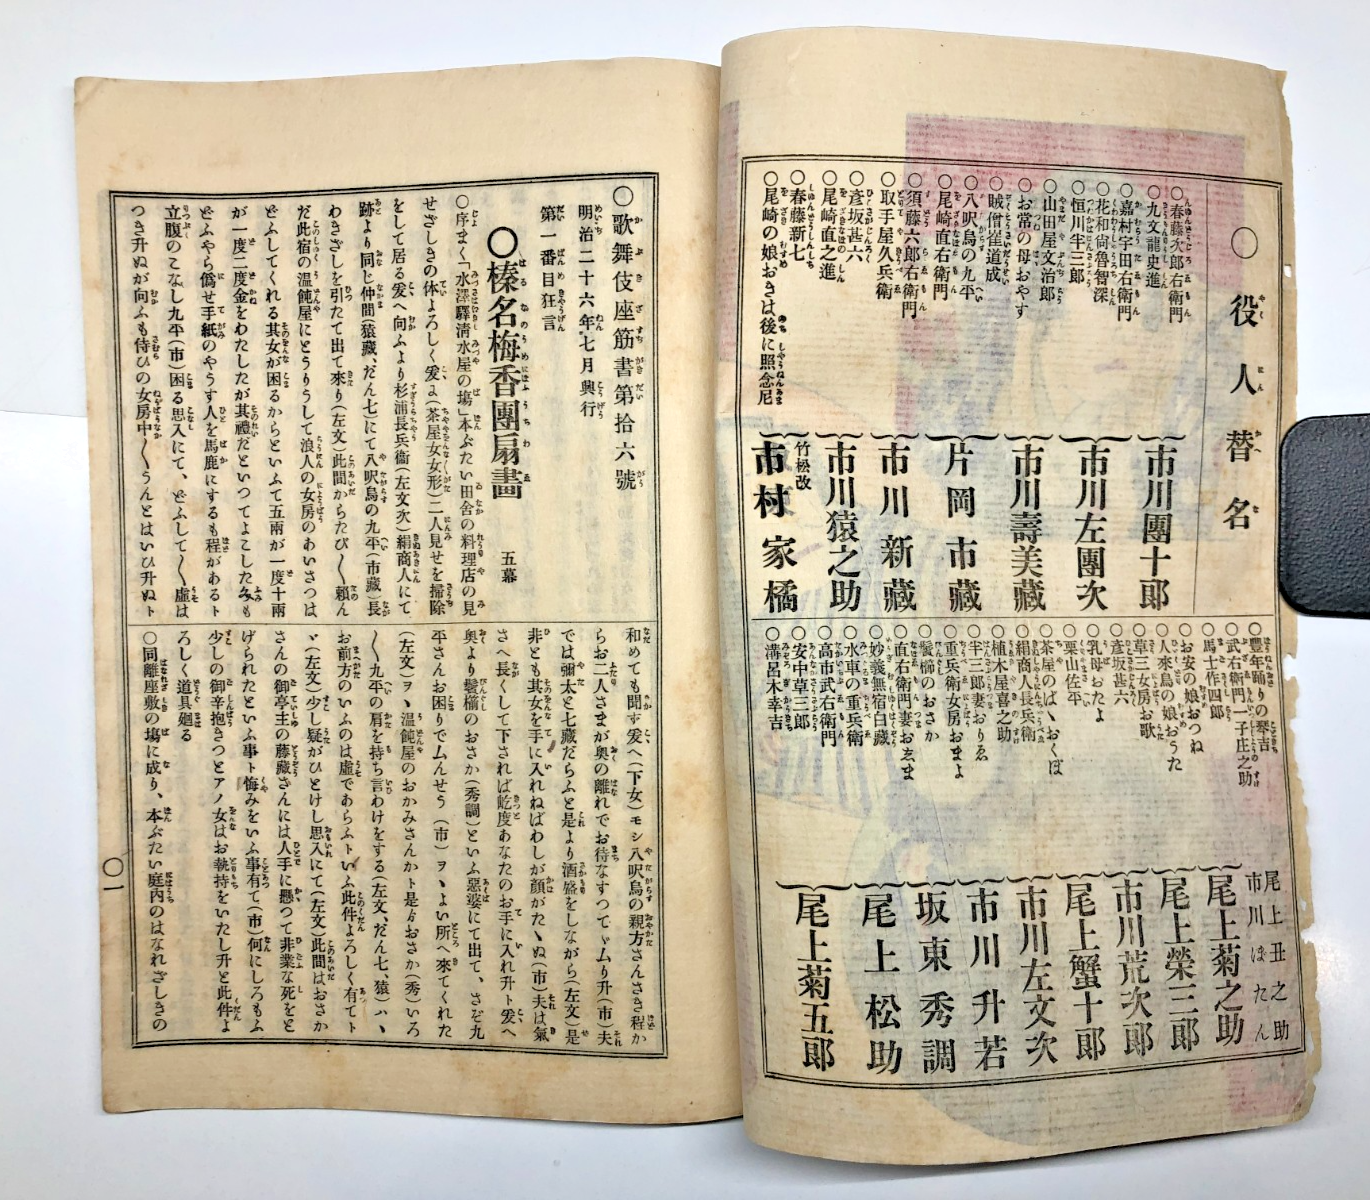 ○役人替名
○春藤次郎右衛門
○九文龍史進
○嘉村宇田右衛門
○花和尚魯智深
○恒川半三郎
市川團十郎
○山田屋文治郎
○お常の母おやす
市川左團次
○賊僧崔道成
○八咫烏の九平
市川壽美藏
○尾崎直右衛門
○須藤六郎右衛門
片岡市藏
○取手屋久兵衛
○彦坂甚六
市川新藏
○尾崎直之進
○春藤新七
市川猿之助
○尾崎の娘おきは後に照念尼
竹松改
市村家橘
○豊年踊りの琴吉
○武右衛門一子庄之助
○馬士作四郎
○お安の娘おつね
○人來鳥の娘おうた
○草三女房お歌
○彦坂甚六
○乳母おたよ
○栗山佐平
○茶屋のばゝおくぼ
○絹商人長兵衛
○植木屋喜之助
○半三郎妻おりゑ
○重兵衛女房おまよ
○鬢櫛のおさか
○直右衛門妻おゑま
○妙義無宿白藏
○水車の重兵衛
○高市武右衛門
○安中草三郎
○溝呂木幸吉
尾上丑之助
市川ぼたん
尾上菊之助
尾上榮三郎
市川荒次郎
尾上蟹十郎
市川左文次
市川升若
坂東秀調
尾上松助
尾上菊五郎
○歌舞伎座筋書第拾六號
明治二十六年七月興行
第一番目狂言
○榛名梅香團扇畵
五幕
○序まく「水澤驛清水屋の塲」本ぶたい田舎の料理店の見
せざしきの体よろしく爰ニ(茶屋女女形)二人見せを掃除
をして居る爰へ向ふより杉浦長兵衞(左文次)絹商人にて
跡より同じ仲間(猿藏、だん七)にて八咫烏の九平(市藏)長
わきざしを引たて出て來り(左文)此間からたび〱頼ん
だ此宿の温飩屋にとうりうして浪人の女房のあいさつは
どふしてくれる其女が困るからといふて五兩が一度十兩
が一度二度金をわたしたが其禮だといつてよこしたふみも
どふやら僞せ手紙のやうす人を馬鹿にするも程があるト
立腹のこなし九平(市)困る思入にて、どふして〱虚は
つき升ぬが向ふも侍ひの女房中〱うんとはいひ升ぬト
和めても聞ず爰へ(下女)モシ八咫烏の親方さんさき程か
らお二人さまが奥の離れでお待なすつてゞムり升(市)夫
では彌太と七藏だらふと是より酒盛をしながら(左文)是
非とも其女を手に入れねばわしが顔がたゝぬ(市)夫は氣
さへ長くして下されば屹度あなたのお手に入れ升ト爰へ
奥より鬢櫛のおさか(秀調)といふ惡婆にて出て、さぞ九
平さんお困りでムんせう(市)ヲヽよい所へ來てくれた
(左文)ヲヽ温飩屋のおかみさんかト是ゟおさか(秀)いろ
〱九平の肩を持ち言わけをする(左文、だん七、猿)ハヽ
お前方のいふのは虚であらふトいふ此件よろしく有てト
ヾ(左文)少し疑がひとけし思入にて(左文)此間はおさか
さんの御亭主の藤藏さんには人手に懸つて非業な死をと
げられたといふ事ト悔みをいふ事有て(市)何にしろもふ
少しの御辛抱きつとアノ女はお執持をいたし升と此件よ
ろしく道具廻る
○同離座敷の塲に成り、本ぶたい庭内のはなれざしきの
〇一